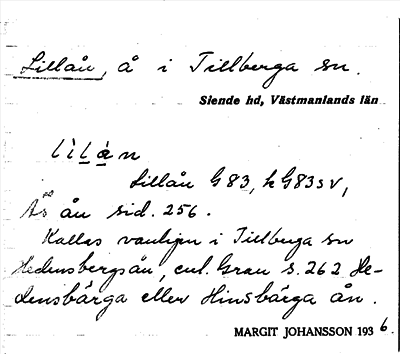 Lillån, å i Tillberga sn.
Siende hd, Västmanlands län
lìlån
Lillån G83, h G83SV,
Ås ån sid. 256.
Kallas vanligen i Tillberga sn
Hedensbergsån, enl. Grau s. 262 He-
densbärga eller Hinsbärga ån.
MARGIT JOHANSSON 1936.